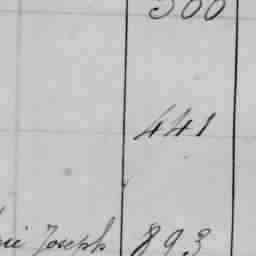 300
441
Joseph 893